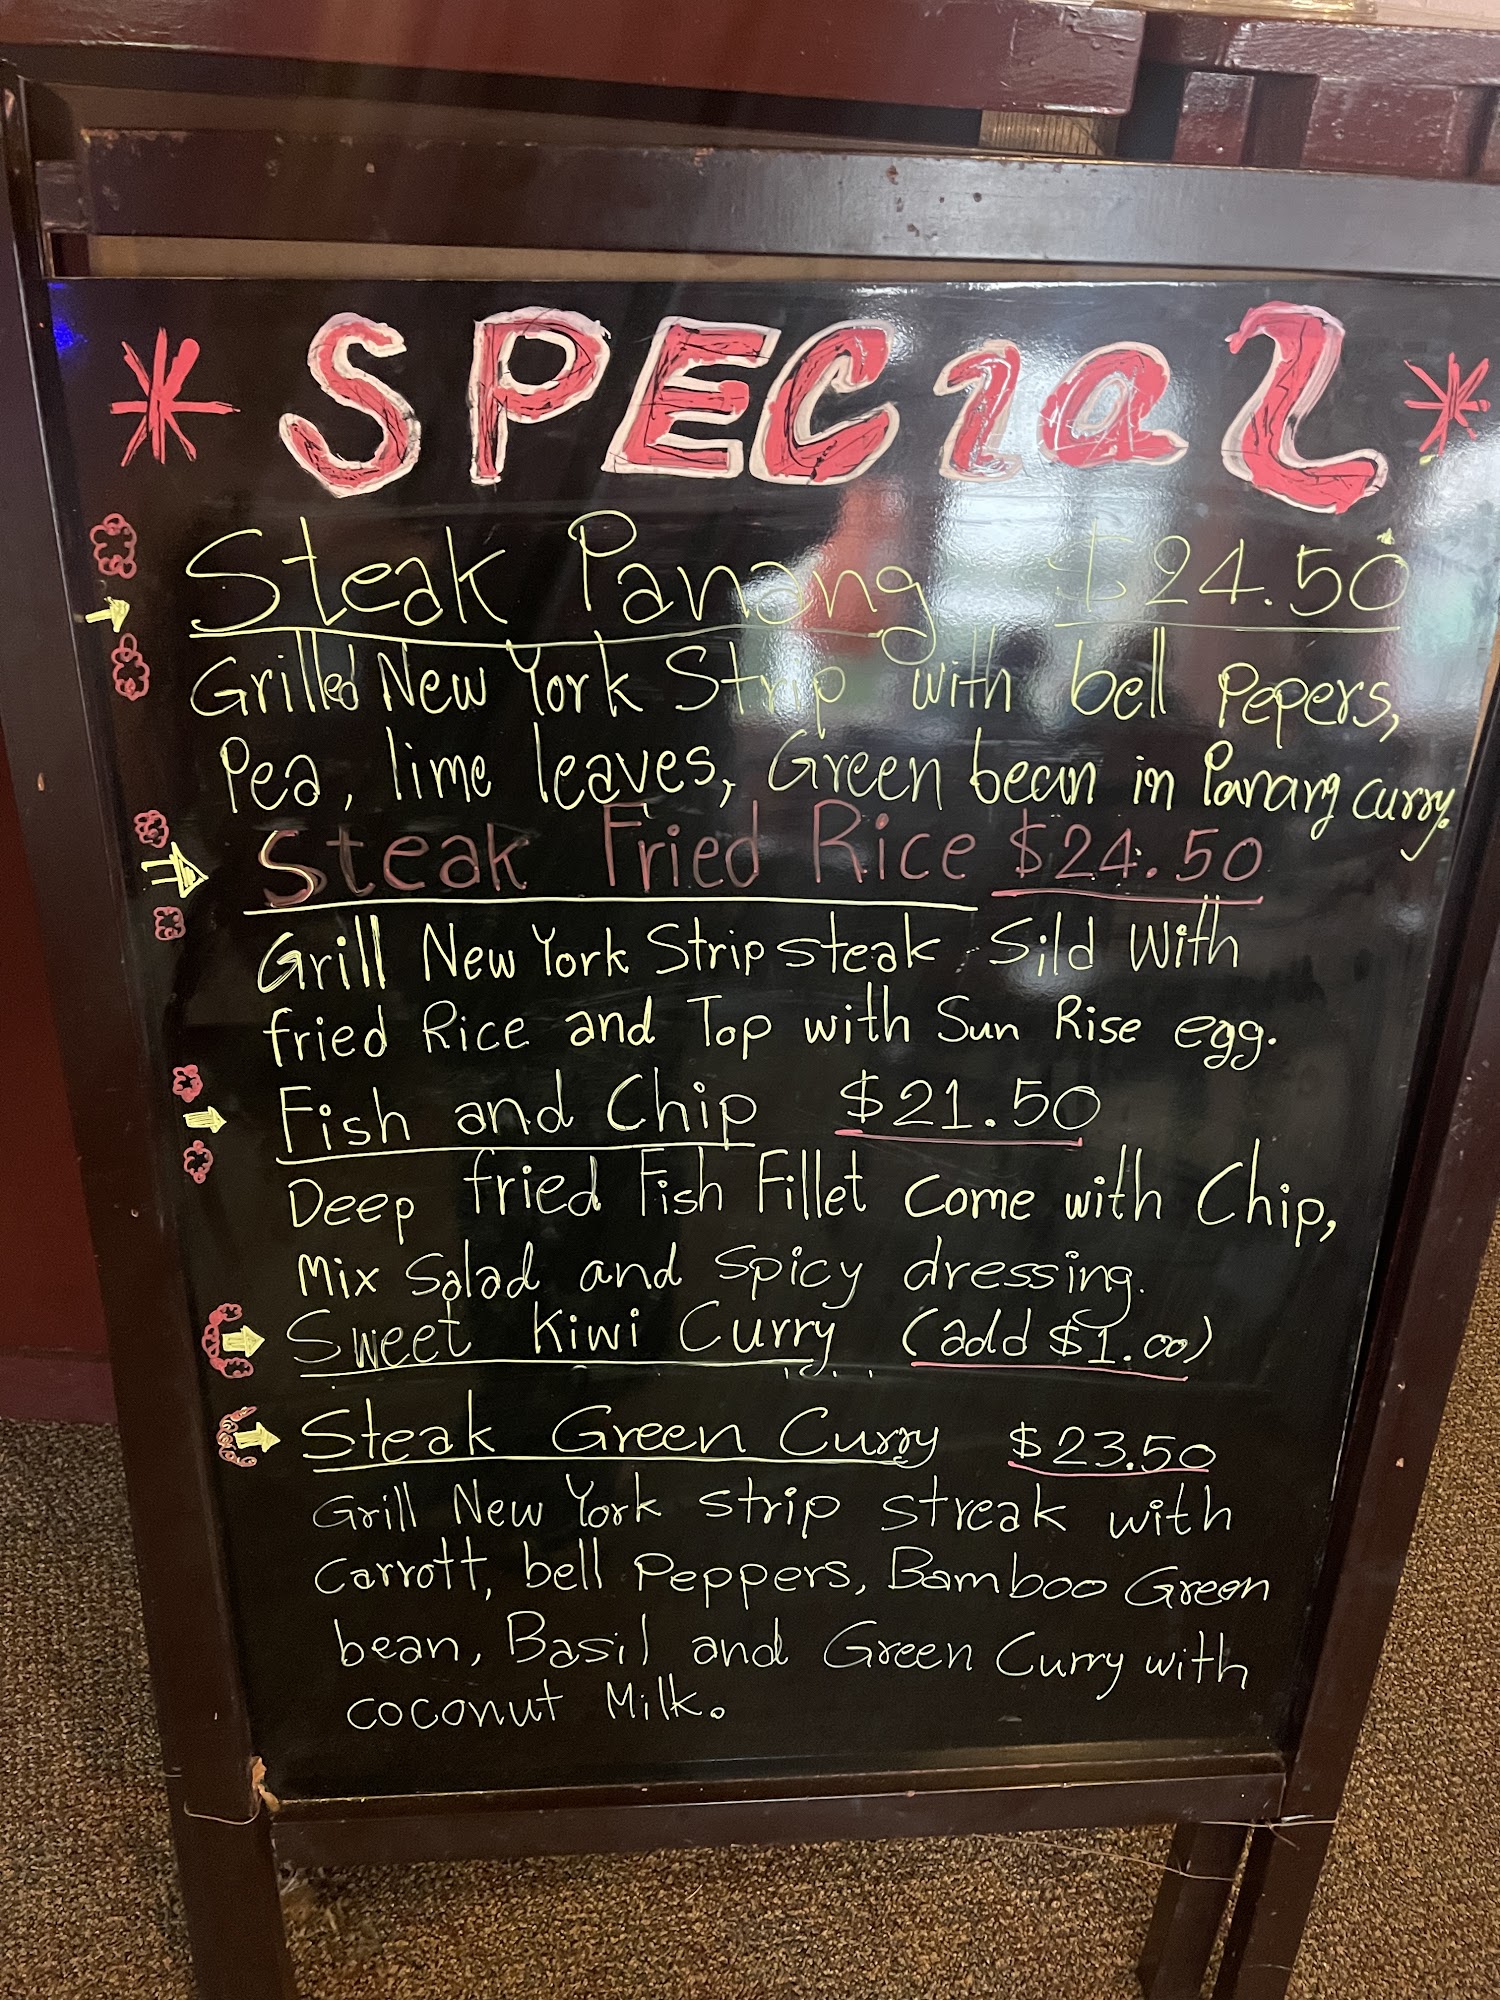 * SPECIAL *
Steak Panang $24.50
Grilled New York Strip with bell Pepers,
Pea, lime leaves, Green bean in Panang curry.
Steak Fried Rice $24.50
Grill New York Strip steak Sild With
fried Rice and Top with Sun Rise egg.
Fish and Chip $21.50
Deep fried Fish Fillet Come with Chip,
Mix Salad and Spicy dressing.
Sweet Kiwi Curry (add $1.00)
Steak Green Curry $23.50
Grill New York Strip streak with
Carrott, bell Peppers, Bamboo Green
bean, Basil and Green Curry with
coconut Milk.